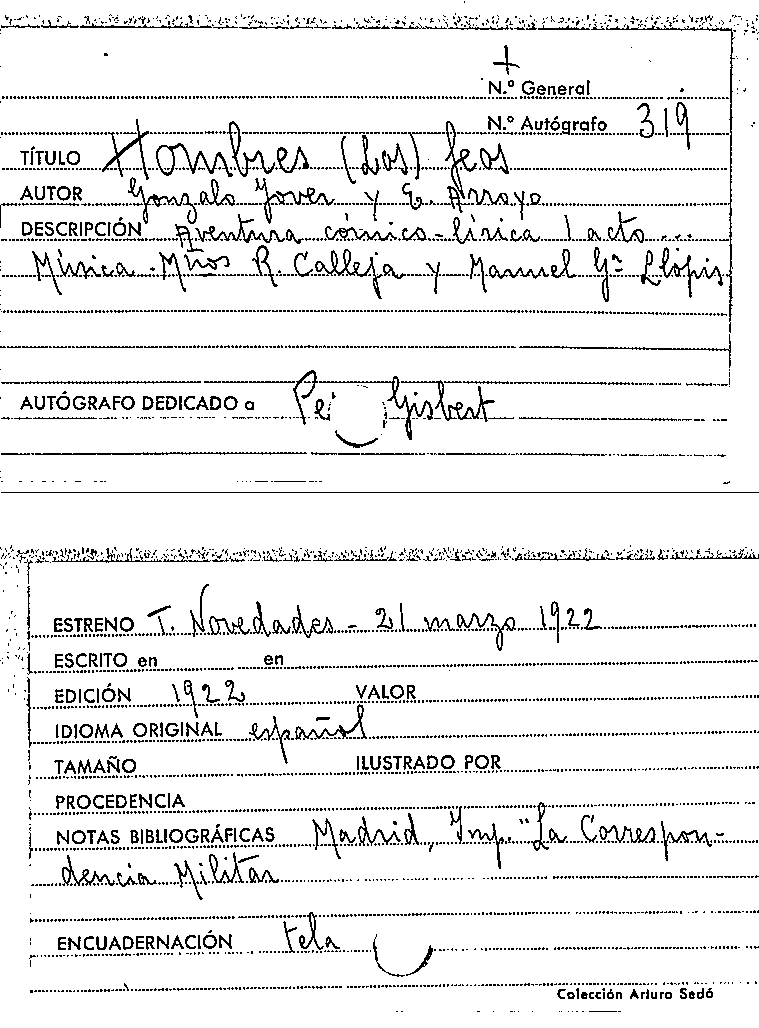 +
N.º General
N.º Autógrafo 319
TÍTULO Hombres (Los) feos
AUTOR Gonzalo Jover y E. Arroyo
DESCRIPCIÓN Aventura cómico-lírica 1 acto...
Música. Mtros R. Calleja y Manuel Gª Llopis
AUTÓGRAFO DEDICADO a Gisbert
ESTRENO T. Novedades - 21 marzo 1922
ESCRITO en en
EDICIÓN 1922 VALOR
IDIOMA ORIGINAL español
TAMAÑO ILUSTRADO POR
PROCEDENCIA
NOTAS BIBLIOGRÁFICAS Madrid, Imp. "La Correspon-
dencia Militar
ENCUADERNACIÓN tela
Colección Arturo Sedó